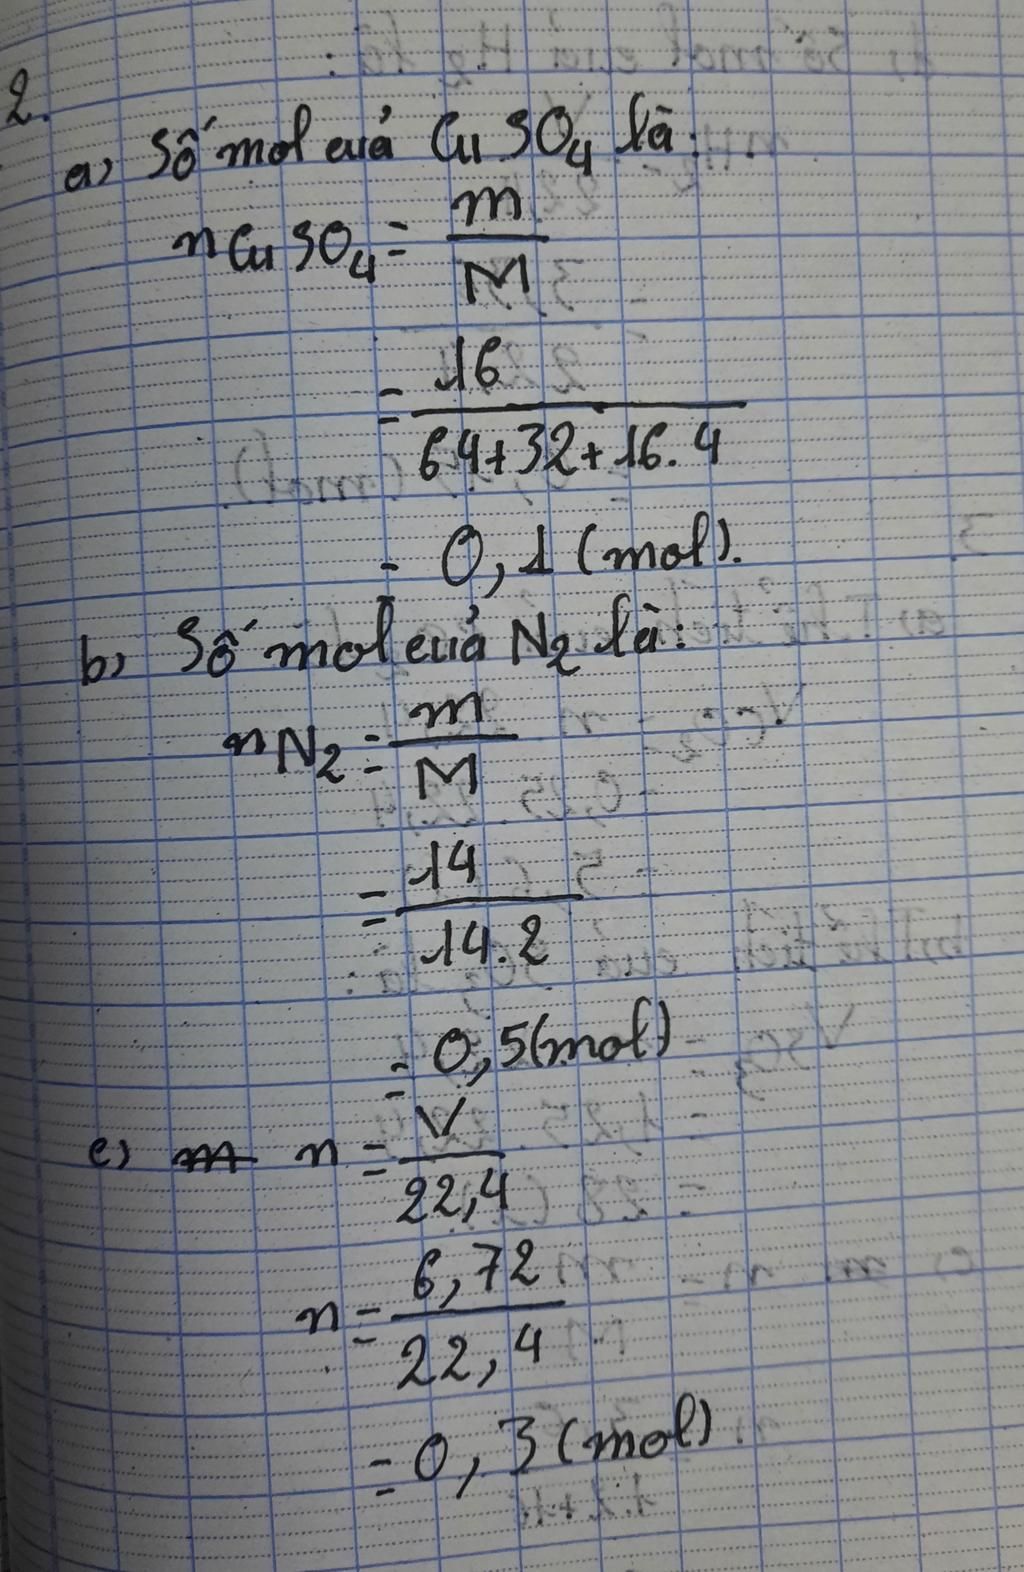 2.
a, Số mol của CuSO4 là:
nCuSO4 = m
M
= 16
64+32+16.4
= 0,1 (mol).
b, Số mol của N2 là:
nN2 = m
M
= 14
14.2
= 0,5(mol)
c) n = V
22,4
n = 6,72
22,4
= 0,3 (mol)